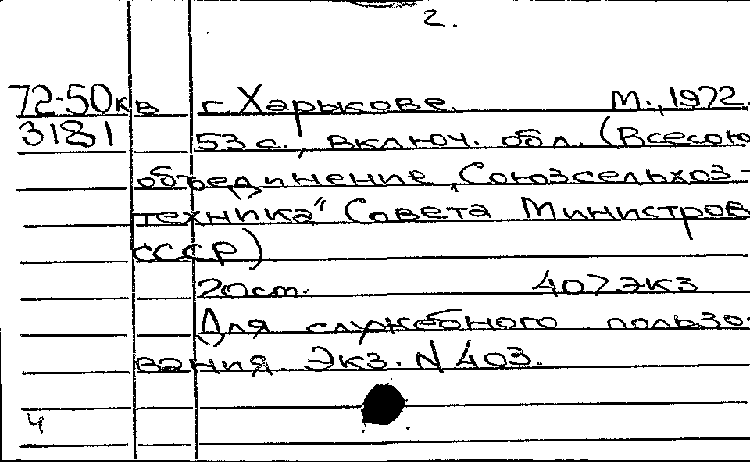 2.
72-50кв г. Харькове. М., 1972.
3181 53 с., включ. обл. (Всесоюз
объединение „Союзсельхоз-
техника" Совета Министров
СССР)
20 ст. 407 экз
Для служебного пользо
вания. Экз. N 403.
4